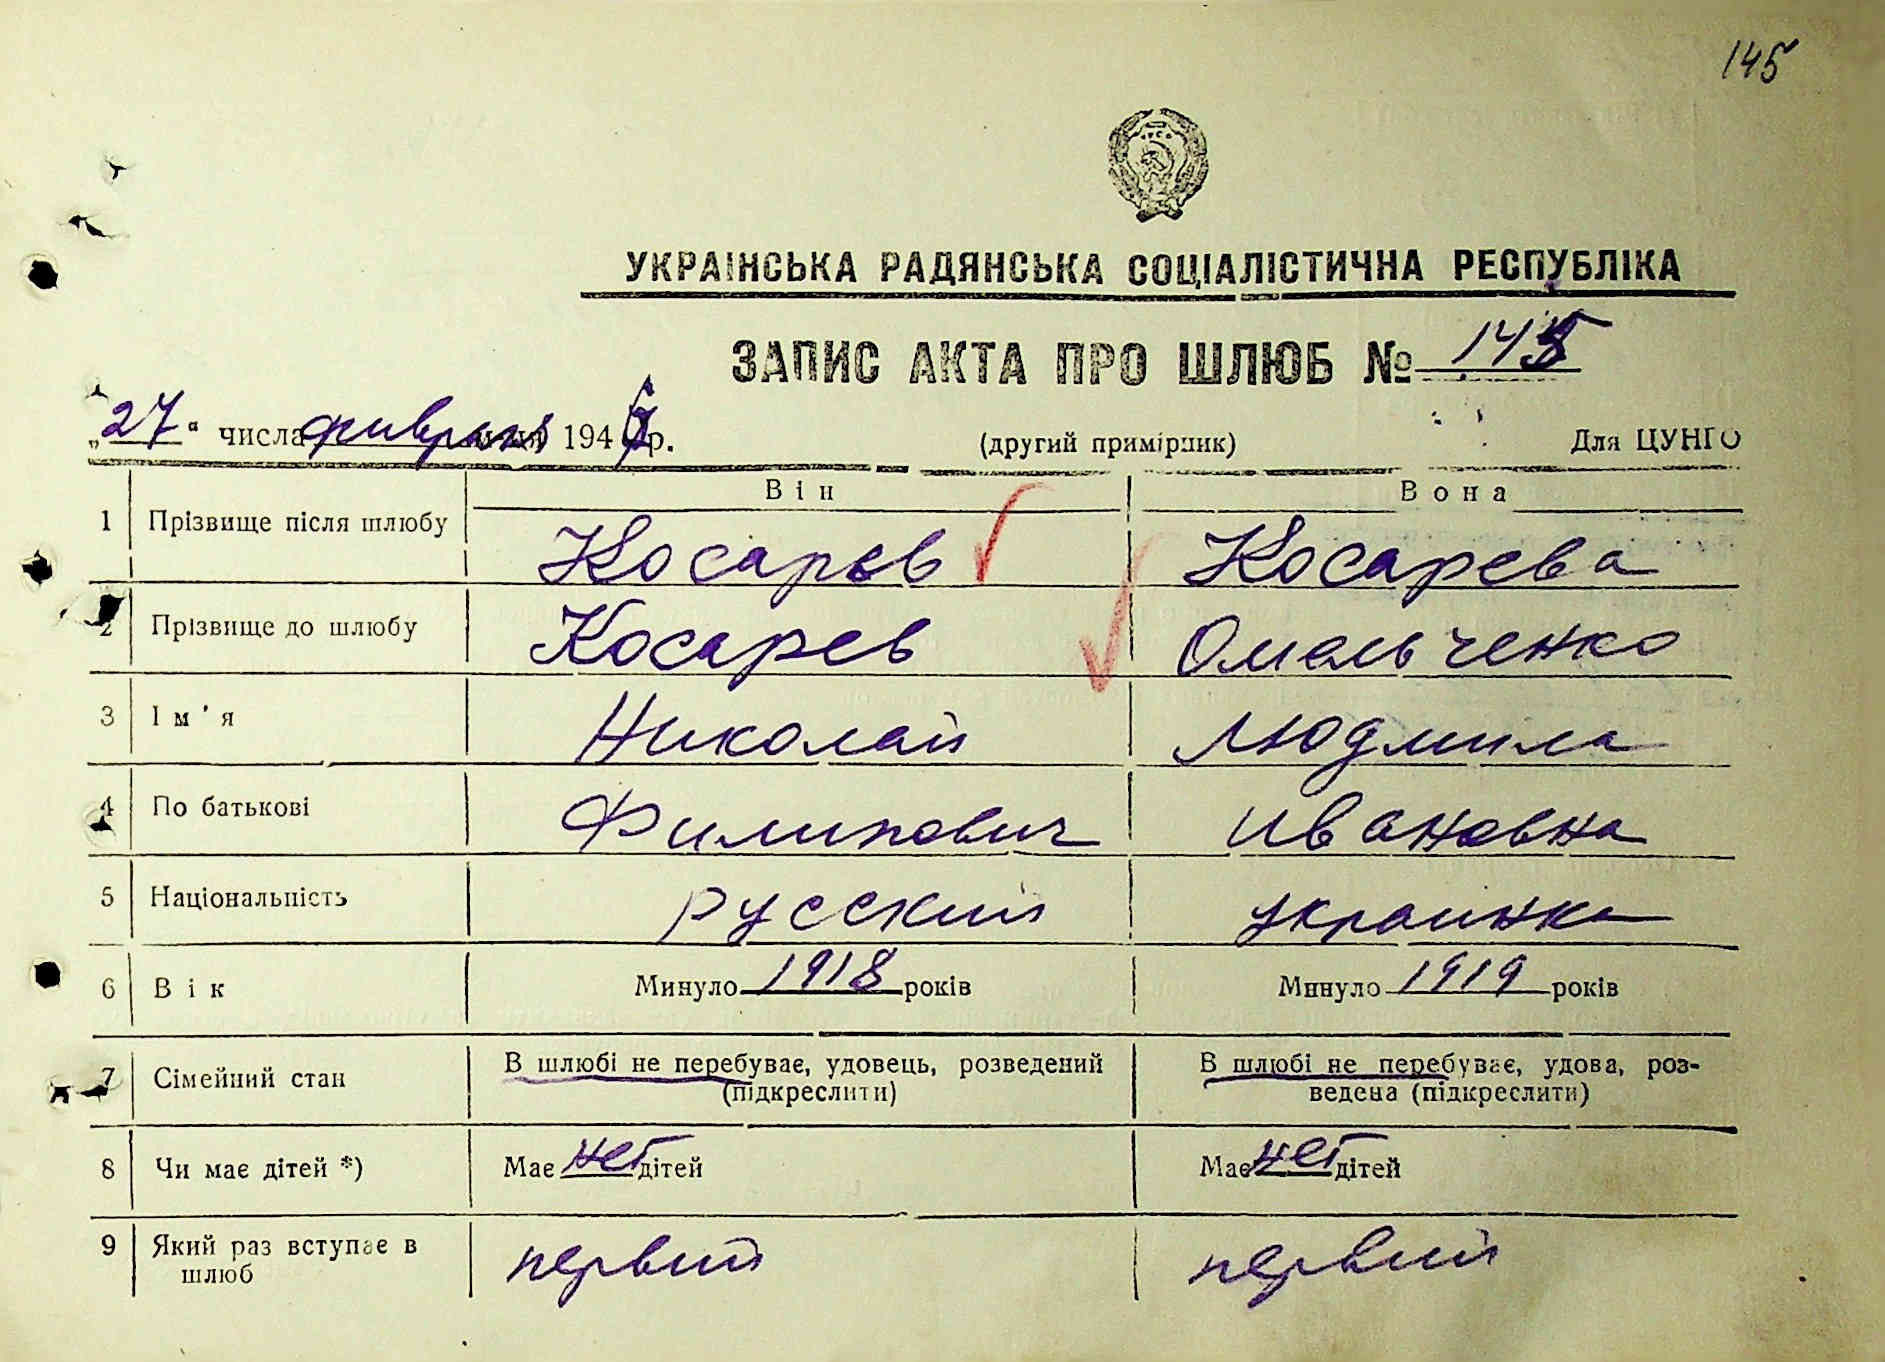 145
УКРАЇНСЬКА РАДЯНСЬКА СОЦІАЛІСТИЧНА РЕСПУБЛІКА
ЗАПИС АКТА ПРО ШЛЮБ № 145
„27“ числа февраля 194 р. (другий примірник) Для ЦУНГО
Він Вона
1 Прізвище після шлюбу Косарев Косарева
2 Прізвище до шлюбу Косарев Омельченко
3 Ім'я Николай Людмила
4 По батькові Филипович Ивановна
5 Національність русский украинка
6 Вік Минуло 1918 років Минуло 1919 років
7 Сімейний стан В шлюбі не перебуває, удовець, розведений (підкреслити) В шлюбі не перебуває, удова, роз-
ведена (підкреслити)
8 Чи має дітей *) Має нет дітей Має нет дітей
9 Який раз вступає в шлюб первый первый